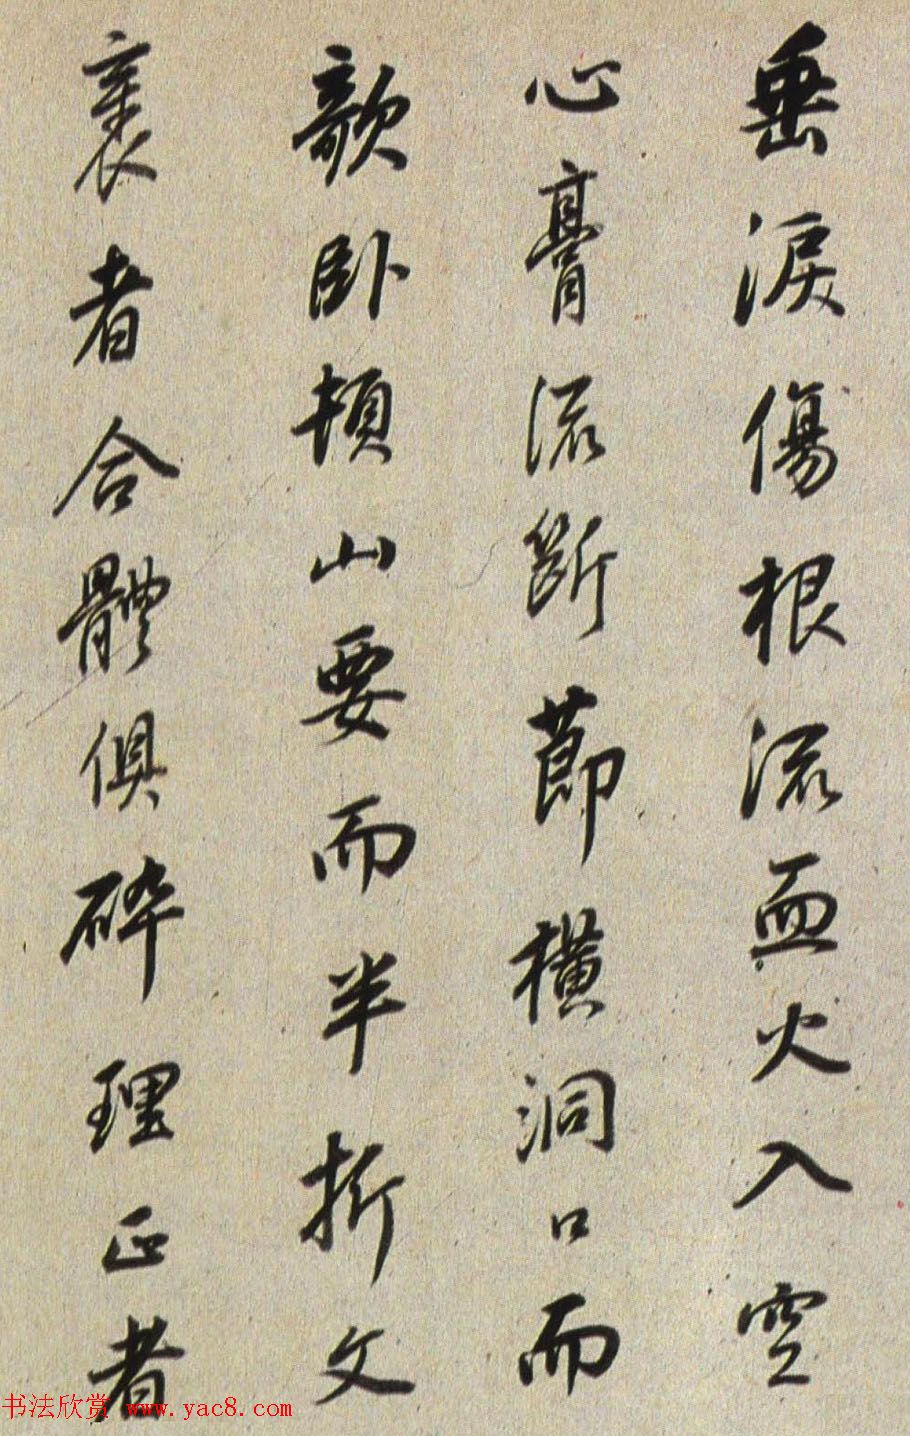 垂淚傷根流血火入空
心膏流斷節橫洞口而
欹臥頓山要而半折文
衺者合體俱碎理正者
书法欣赏 www.yac8.com